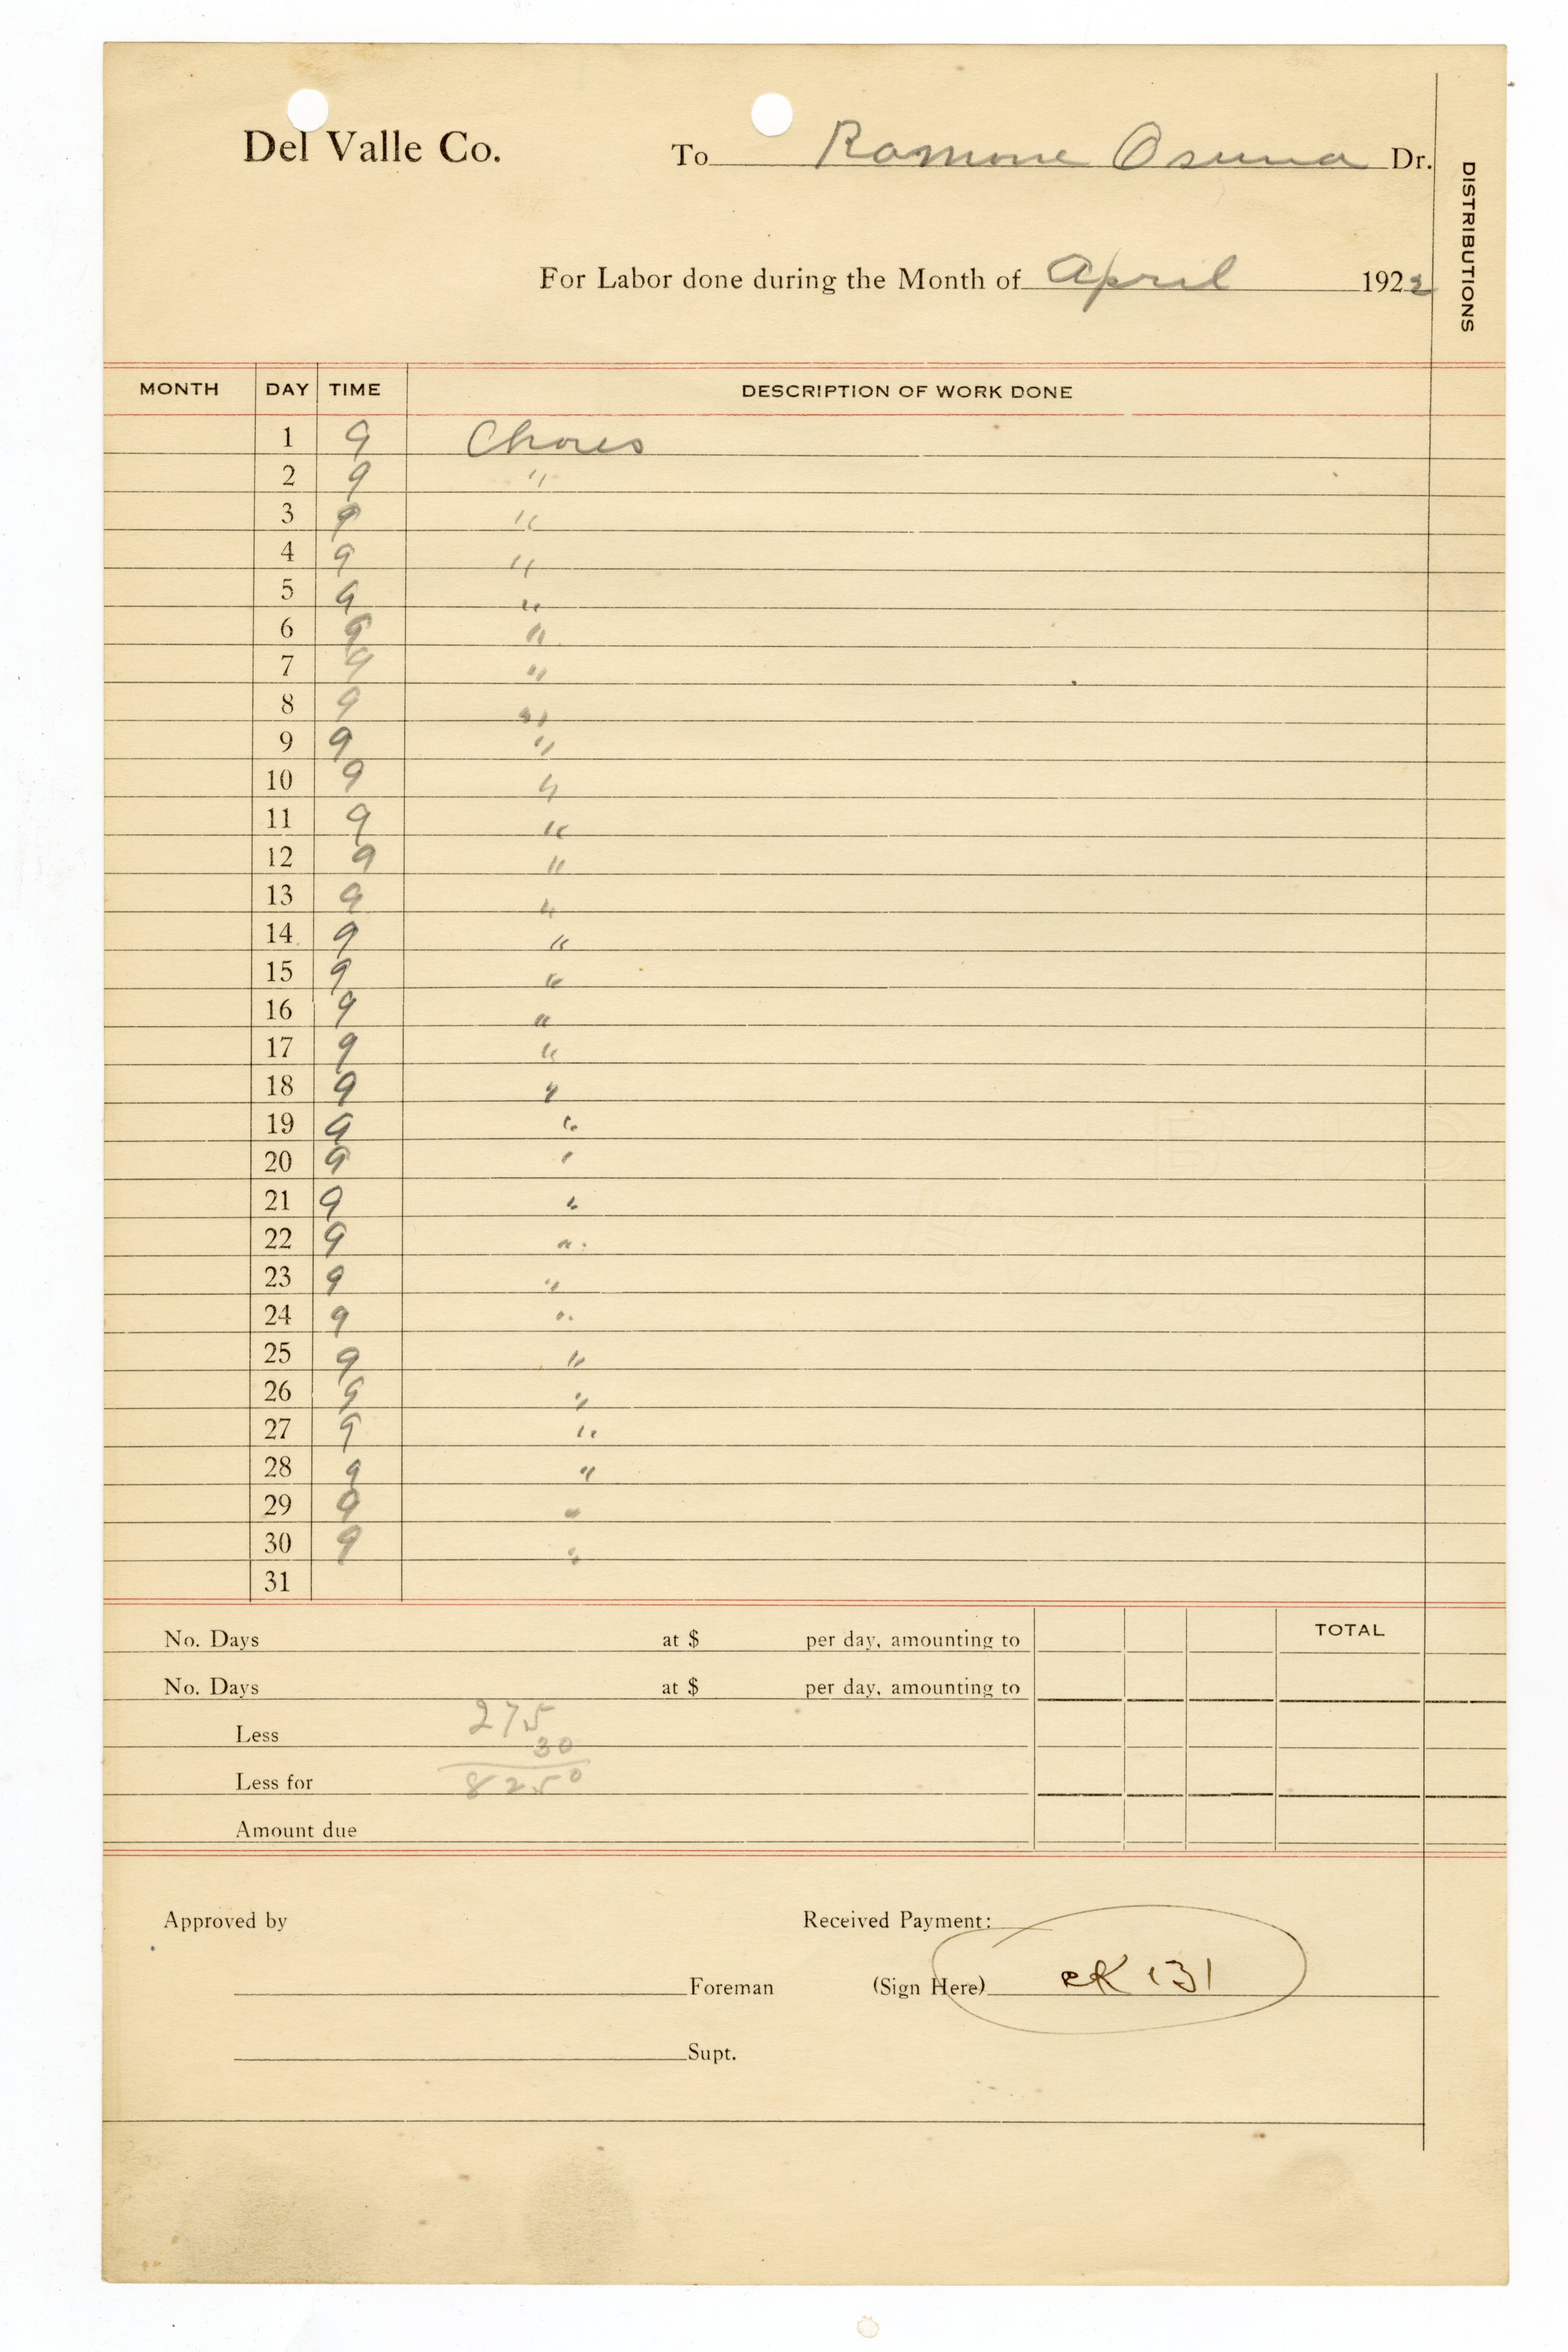 Del Valle Co. To Romone Osuna Dr.
DISTRIBUTIONS
For Labor done during the Month of April 1922
MONTH DAY TIME DESCRIPTION OF WORK DONE
1 9 Chores
2 9 "
3 9 "
4 9 "
5 9 "
6 9 "
7 9 "
8 9 "
9 9 "
10 9 "
11 9 "
12 9 "
13 9 "
14 9 "
15 9 "
16 9 "
17 9 "
18 9 "
19 9 "
20 9 "
21 9 "
22 9 "
23 9 "
24 9 "
25 9 "
26 9 "
27 9 "
28 9 "
29 9 "
30 9 "
31
No. Days at $ per day, amounting to TOTAL
No. Days at $ per day, amounting to
275
Less
30
Less for 8250
Amount due
Approved by Received Payment:
Foreman (Sign Here) cK 131
Supt.